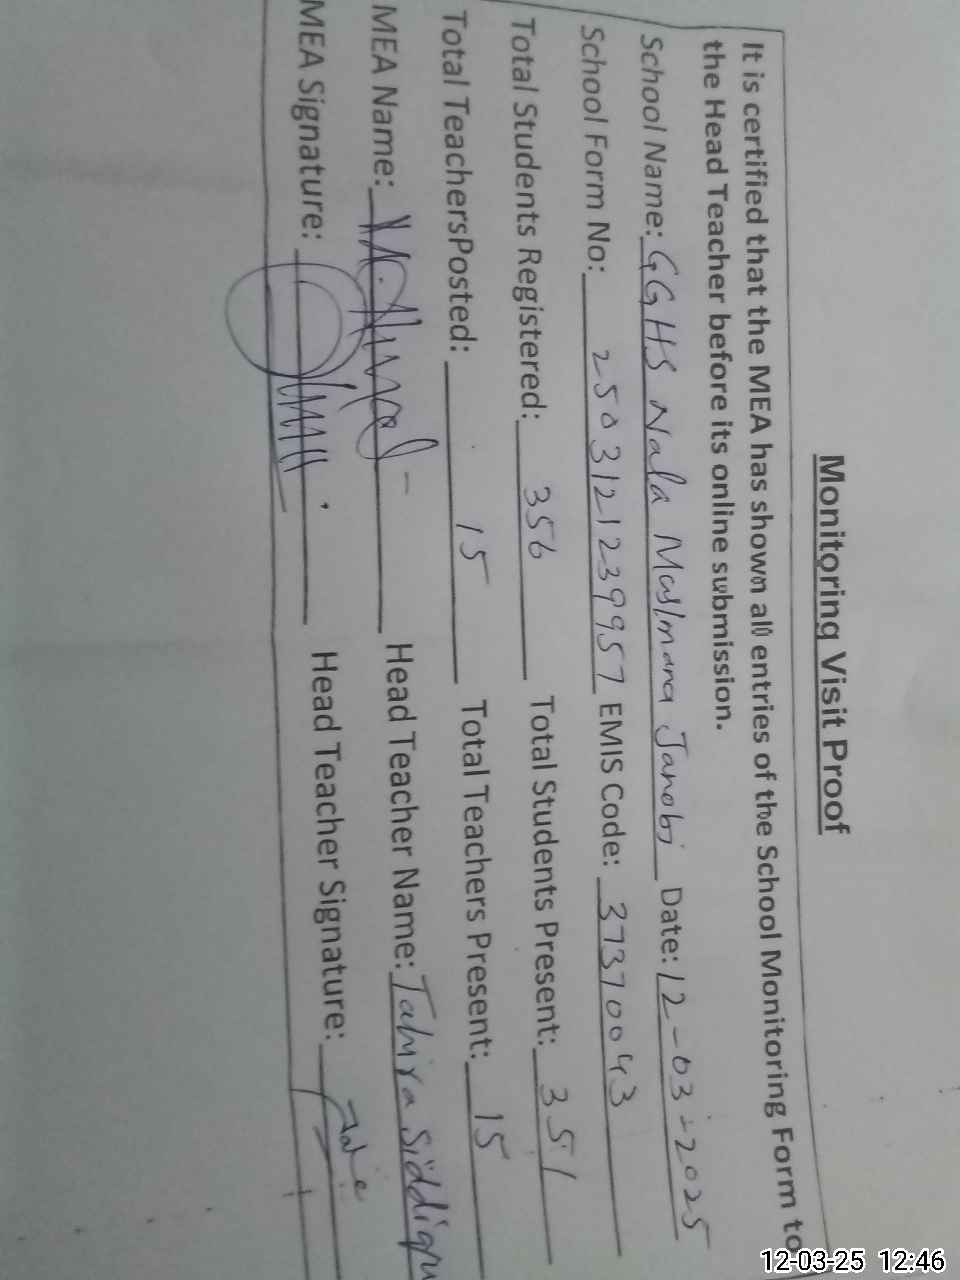 Monitoring Visit Proof
It is certified that the MEA has shown all entries of the School Monitoring Form to
the Head Teacher before its online submission.
School Name: GGHS Nala Maslmana Janobi Date: 12-03-2025
School Form No: 2503121239957 EMIS Code: 37370043
Total Students Registered: 356 Total Students Present: 351
Total TeachersPosted: 15 Total Teachers Present: 15
MEA Name: Head Teacher Name: Tahira Siddiqu
MEA Signature: Head Teacher Signature:
12-03-25 12:46